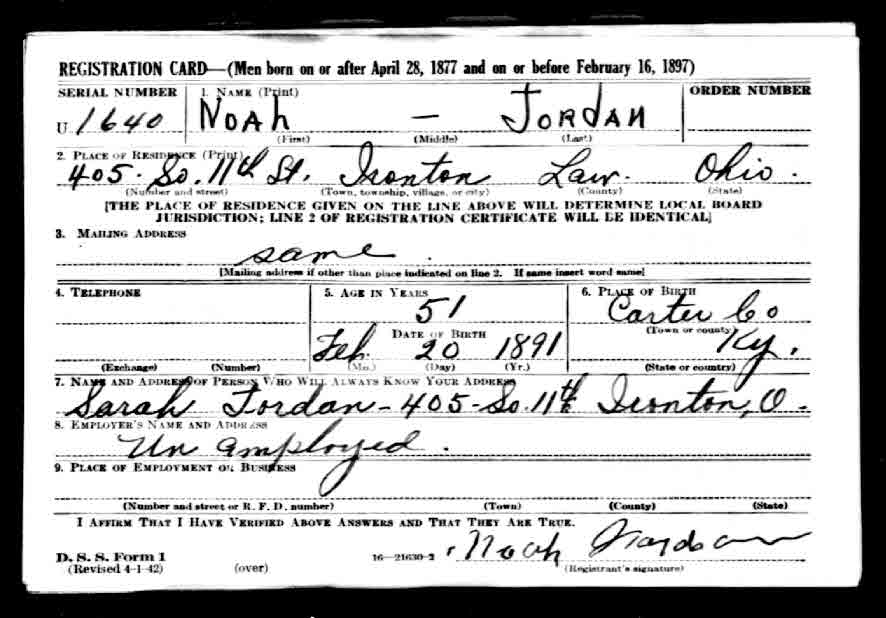 REGISTRATION CARD—(Men born on or after April 28, 1877 and on or before February 16, 1897)
SERIAL NUMBER 1. NAME (Print) ORDER NUMBER
U 1640 NOAH — JORDAN
(First) (Middle) (Last)
2. PLACE OF RESIDENCE (Print)
405- So. 11th St. Ironton Law. Ohio.
(Number and street) (Town, township, village, or city) (County) (State)
[THE PLACE OF RESIDENCE GIVEN ON THE LINE ABOVE WILL DETERMINE LOCAL BOARD
JURISDICTION; LINE 2 OF REGISTRATION CERTIFICATE WILL BE IDENTICAL]
3. MAILING ADDRESS
same.
[Mailing address if other than place indicated on line 2. If same insert word same]
4. TELEPHONE 5. AGE IN YEARS 6. PLACE OF BIRTH
51 Carter Co
DATE OF BIRTH (Town or county)
Feb. 20 1891 Ky.
(Exchange) (Number) (Mo.) (Day) (Yr.) (State or country)
7. NAME AND ADDRESS OF PERSON WHO WILL ALWAYS KNOW YOUR ADDRESS
Sarah Jordan - 405 - So. 11th Ironton, O.
8. EMPLOYER'S NAME AND ADDRESS
Un amployed.
9. PLACE OF EMPLOYMENT OR BUSINESS
(Number and street or R. F. D. number) (Town) (County) (State)
I AFFIRM THAT I HAVE VERIFIED ABOVE ANSWERS AND THAT THEY ARE TRUE.
D. S. S. Form 1 16—21630-2 Noah Jordan
(Revised 4-1-42) (over) (Registrant's signature)